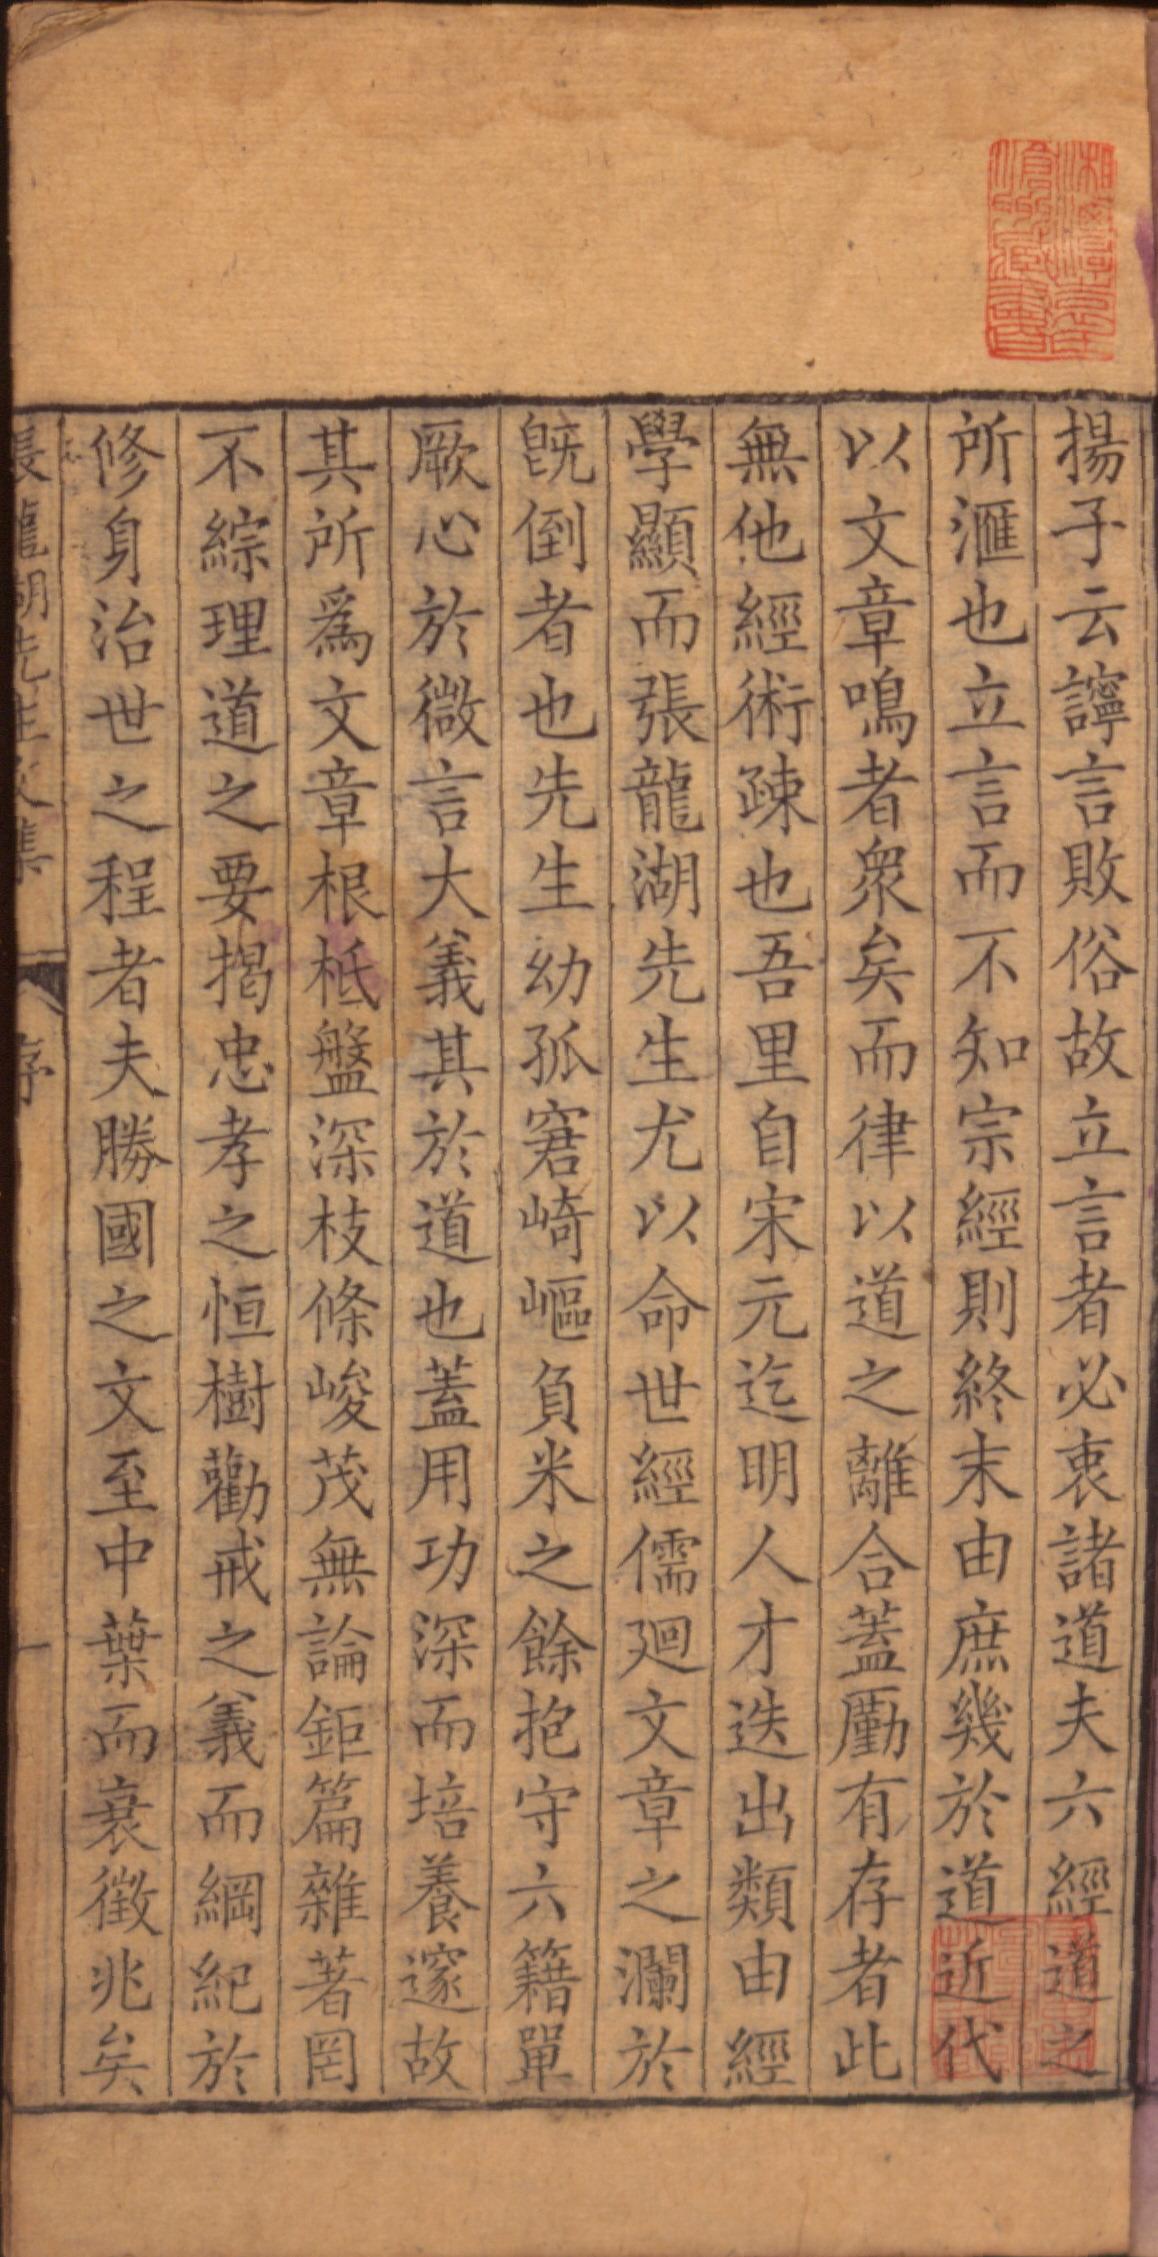 揚子云謣言敗俗故立言者必衷諸道夫六經道之
所滙也立言而不知宗經則終末由庶幾於道近代
以文章鳴者衆矣而律以道之離合蓋勵有存者此
無他經術疎也吾里自宋元迄明人才迭出類由經
學顯而張龍湖先生尤以命世經儒廻文章之瀾於
旣倒者也先生幼孤窘崎嶇負米之餘抱守六籍單
厥心於微言大義其於道也蓋用功深而培養邃故
其所爲文章根柢盤深枝條峻茂無論鉅篇雜著罔
不綜理道之要揭忠孝之恒樹勸戒之義而綱紀於
修身治世之程者夫勝國之文至中葉而衰徵兆矣
張龍湖先生文集
序
一